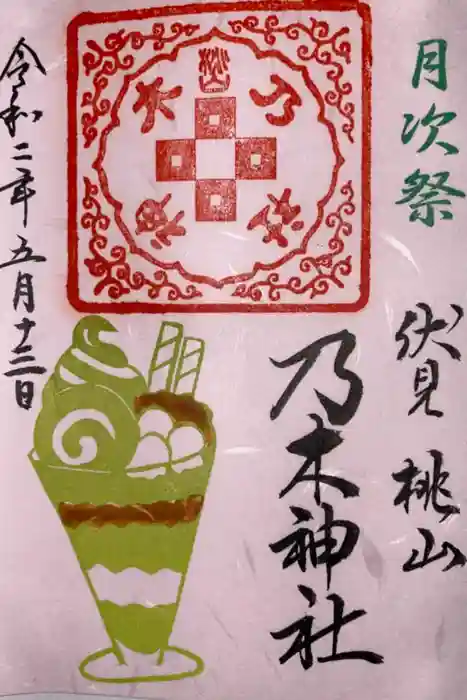 月次祭
伏見 桃山
乃木神社
令和二年五月十三日